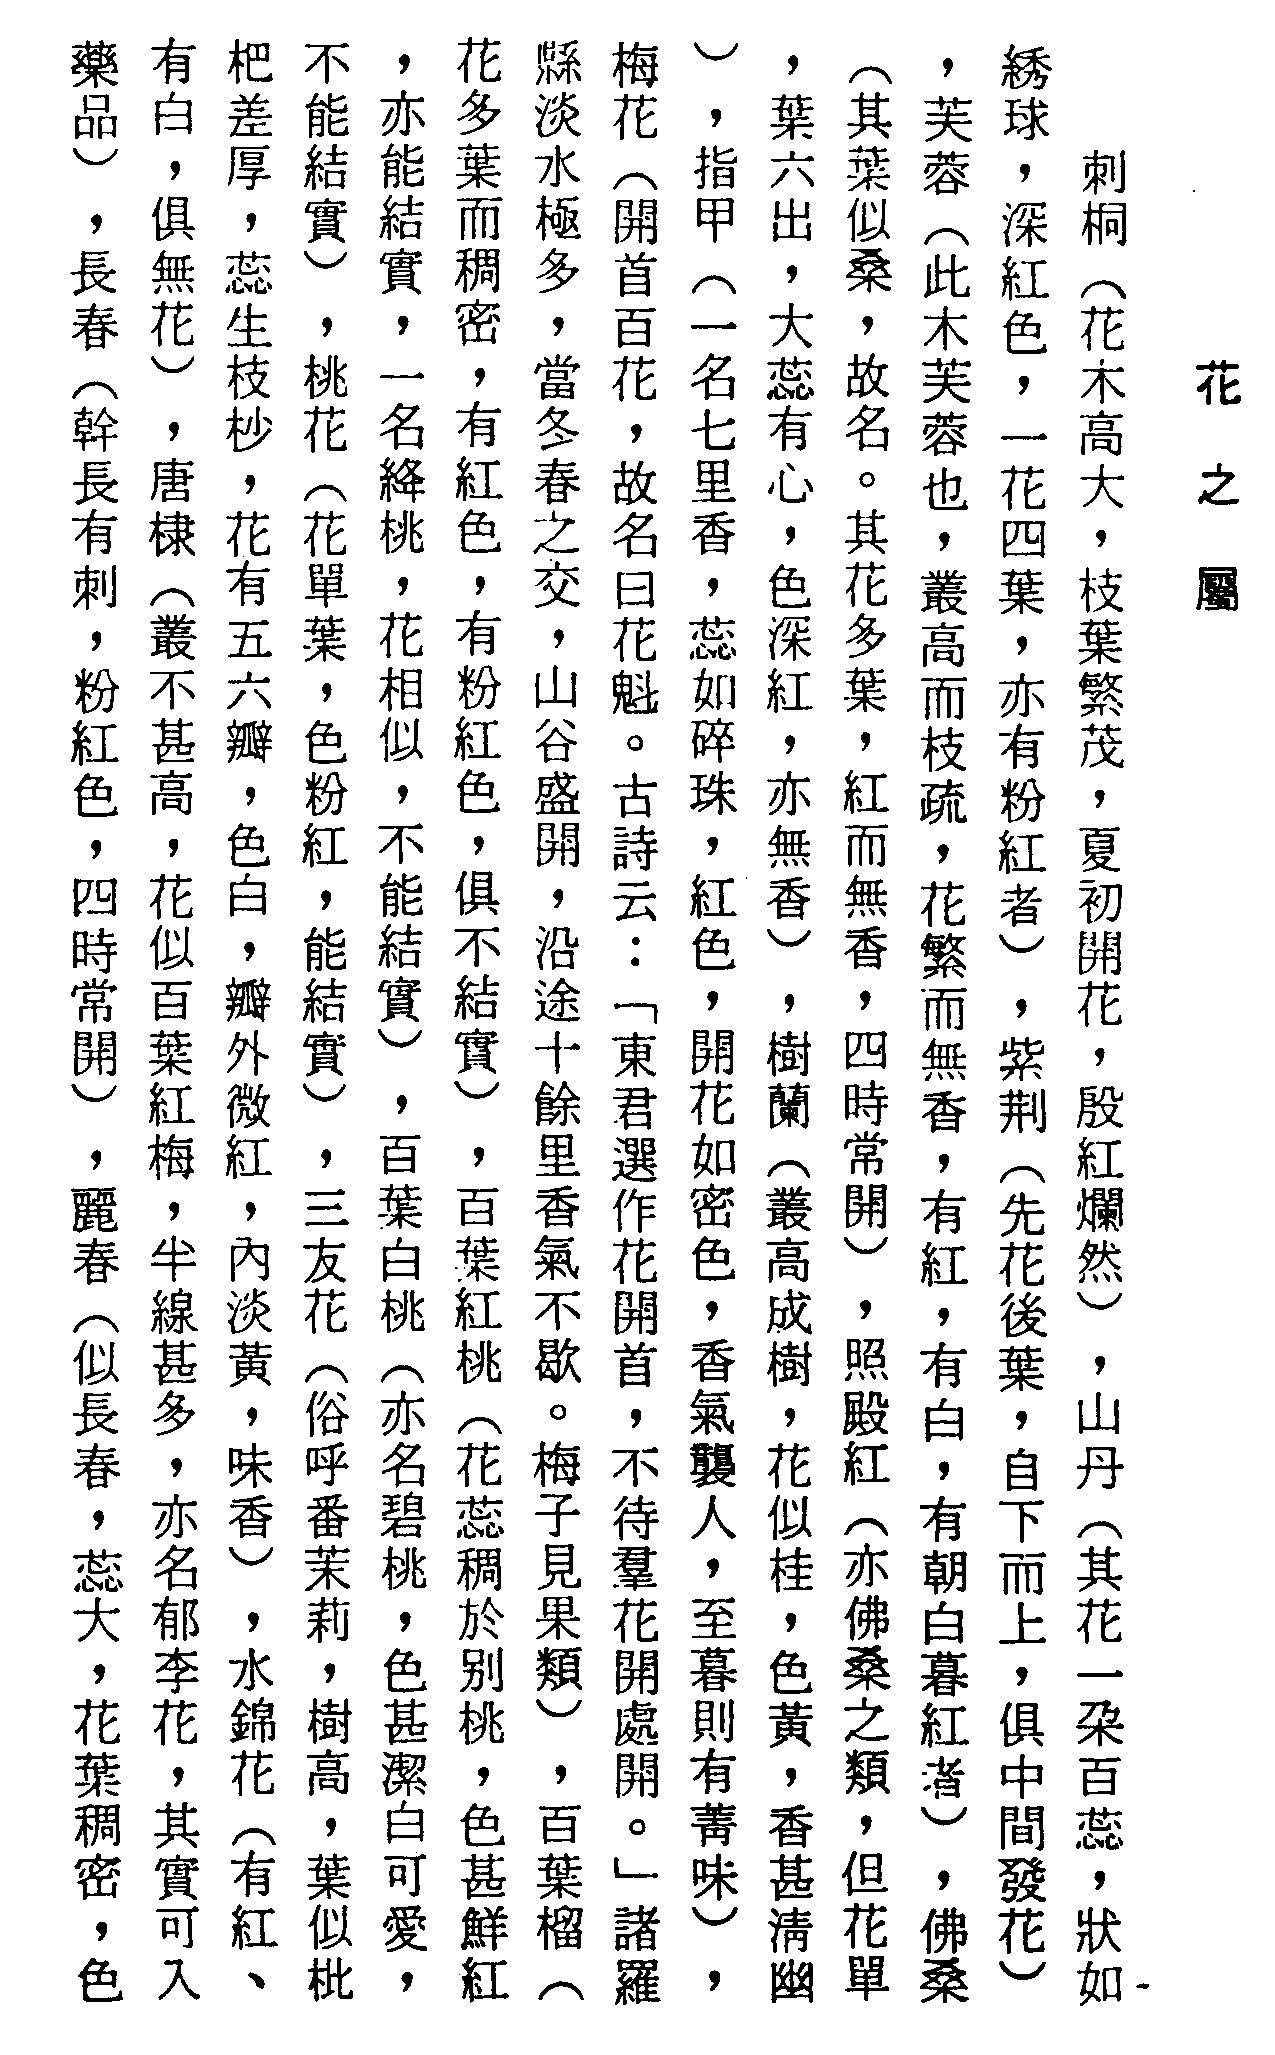 花之屬
刺桐（花木高大，枝葉繁茂，夏初開花，殷紅爛然），山丹（其花一朶百蕊，狀如
綉球，深紅色，一花四葉，亦有粉紅者），紫荆（先花後葉，自下而上，俱中間發花）
，芙蓉（此木芙蓉也，叢高而枝疏，花繁而無香，有紅，有白，有朝白暮紅者），佛桑
（其葉似桑，故名。其花多葉，紅而無香，四時常開），照殿紅（亦佛桑之類，但花單
，葉六出，大蕊有心，色深紅，亦無香），樹蘭（叢高成樹，花似桂，色黃，香甚淸幽
），指甲（一名七里香，蕊如碎珠，紅色，開花如密色，香氣襲人，至暮則有薺味），
梅花（開首百花，故名曰花魁。古詩云：「東君選作花開首，不待羣花開處開。」諸羅
縣淡水極多，當冬春之交，山谷盛開，沿途十餘里香氣不歇。梅子見果類），百葉榴（
花多葉而稠密，有紅色，有粉紅色，俱不結實），百葉紅桃（花蕊稠於別桃，色甚鮮紅
，亦能結實，一名絳桃，花相似，不能結實），百葉白桃（亦名碧桃，色甚潔白可愛，
不能結實），桃花（花單葉，色粉紅，能結實），三友花（俗呼番茉莉，樹高，葉似枇
杷差厚，蕊生枝杪，花有五六瓣，色白，瓣外微紅，內淡黃，味香），水錦花（有紅、
有白，俱無花），唐棣（叢不甚高，花似百葉紅梅，半線甚多，亦名郁李花，其實可入
藥品），長春（幹長有刺，粉紅色，四時常開），麗春（似長春，蕊大，花葉稠密，色